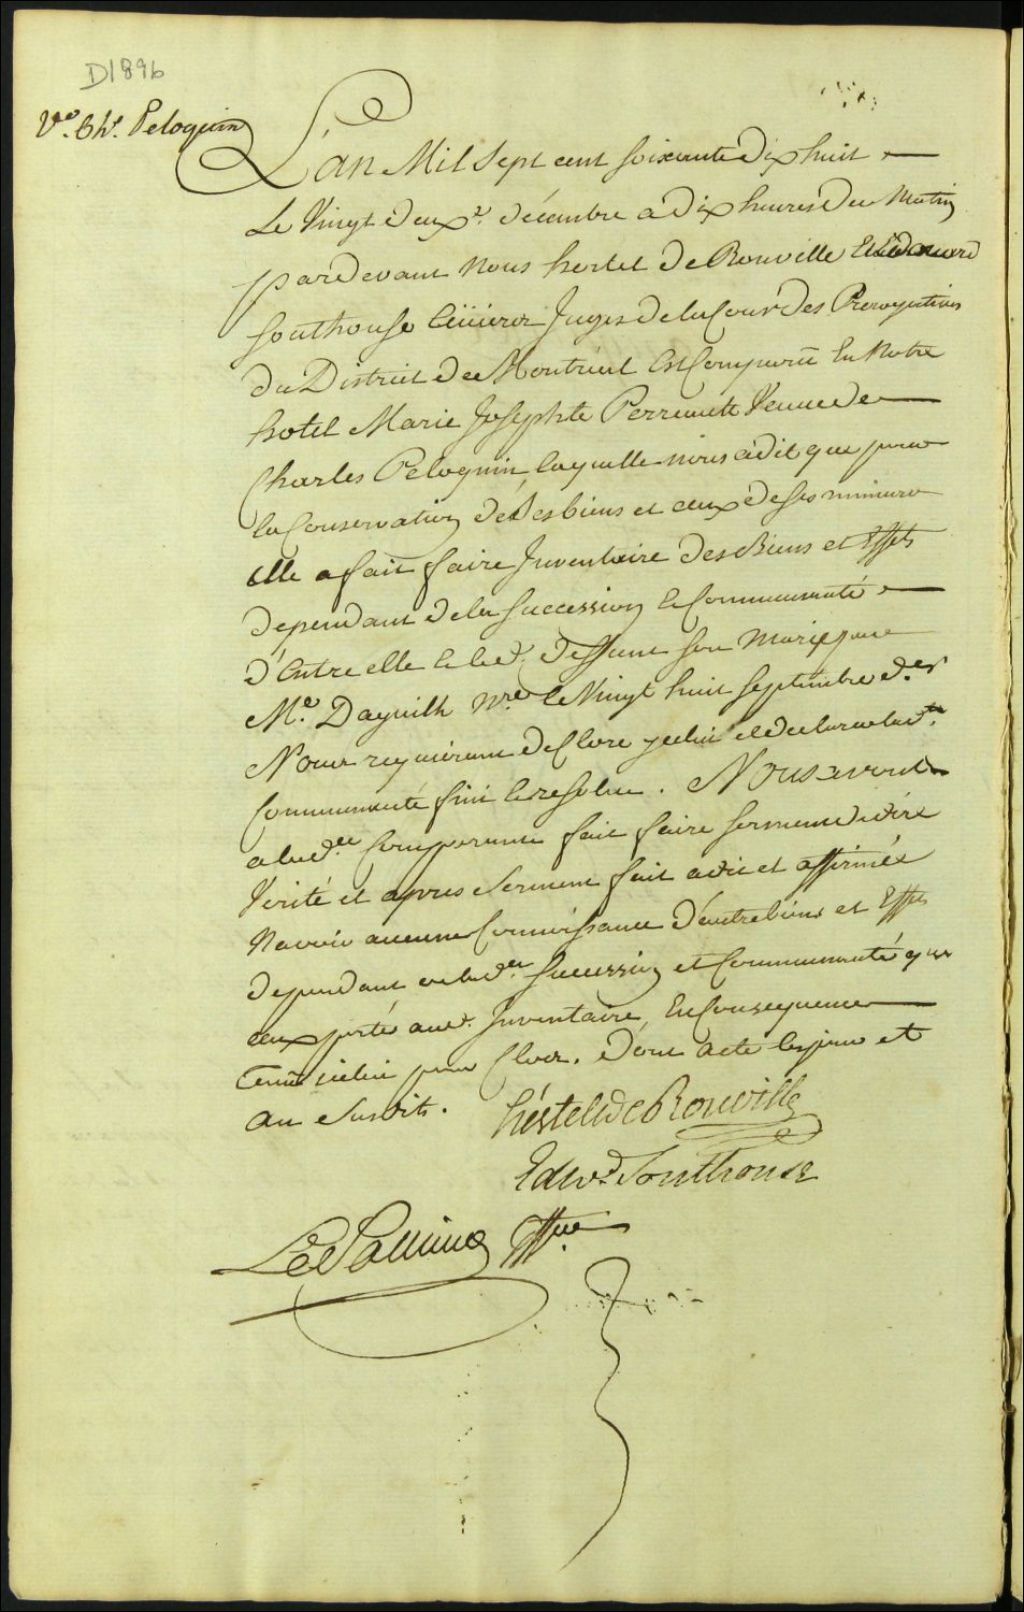 D1896
Ve. Chs. Peloquin
L'an Mil Sept cent soixante Dix huit
Le Vingt deuxe. décembre a Dix heures Du Matin
pardevant Nous hertel De Rouville Et Edouard
Southouse Ecuiers Juges De la Cour Des Prerogatives
Du District De Montreal Est Comparüe En Notre
hotel Marie Josephte Perreault Veuve de
Charles Peloquin, laquelle nous a dit que pour
la Conservation de Ses biens et ceux de Ses mineurs
elle a fait faire Inventaire Des Biens et Effets
dependant de la Succession et Communauté
d'Entre elle et led. deffunt son Mari par
Me. Daguilh Nre. le Vingt huit Septembre der
Nous requierant De Clore yceluy et declarer lade.
Communauté fini et resolue. Nous avons
a lade. Comparante fait faire serment de dire
Verité et apres serment fait a dit et affirmé
N'avoir aucunne Connoissance d'autre biens et Effets
dependant de lade. Succession et Communauté que
ceux porté aud. Inventaire, En Consequence
Tenu icelui pour Clos. dont acte les jour et
an Susdits.
hertel de Rouville
Edwd. Southouse
Le Pallieur Gffier